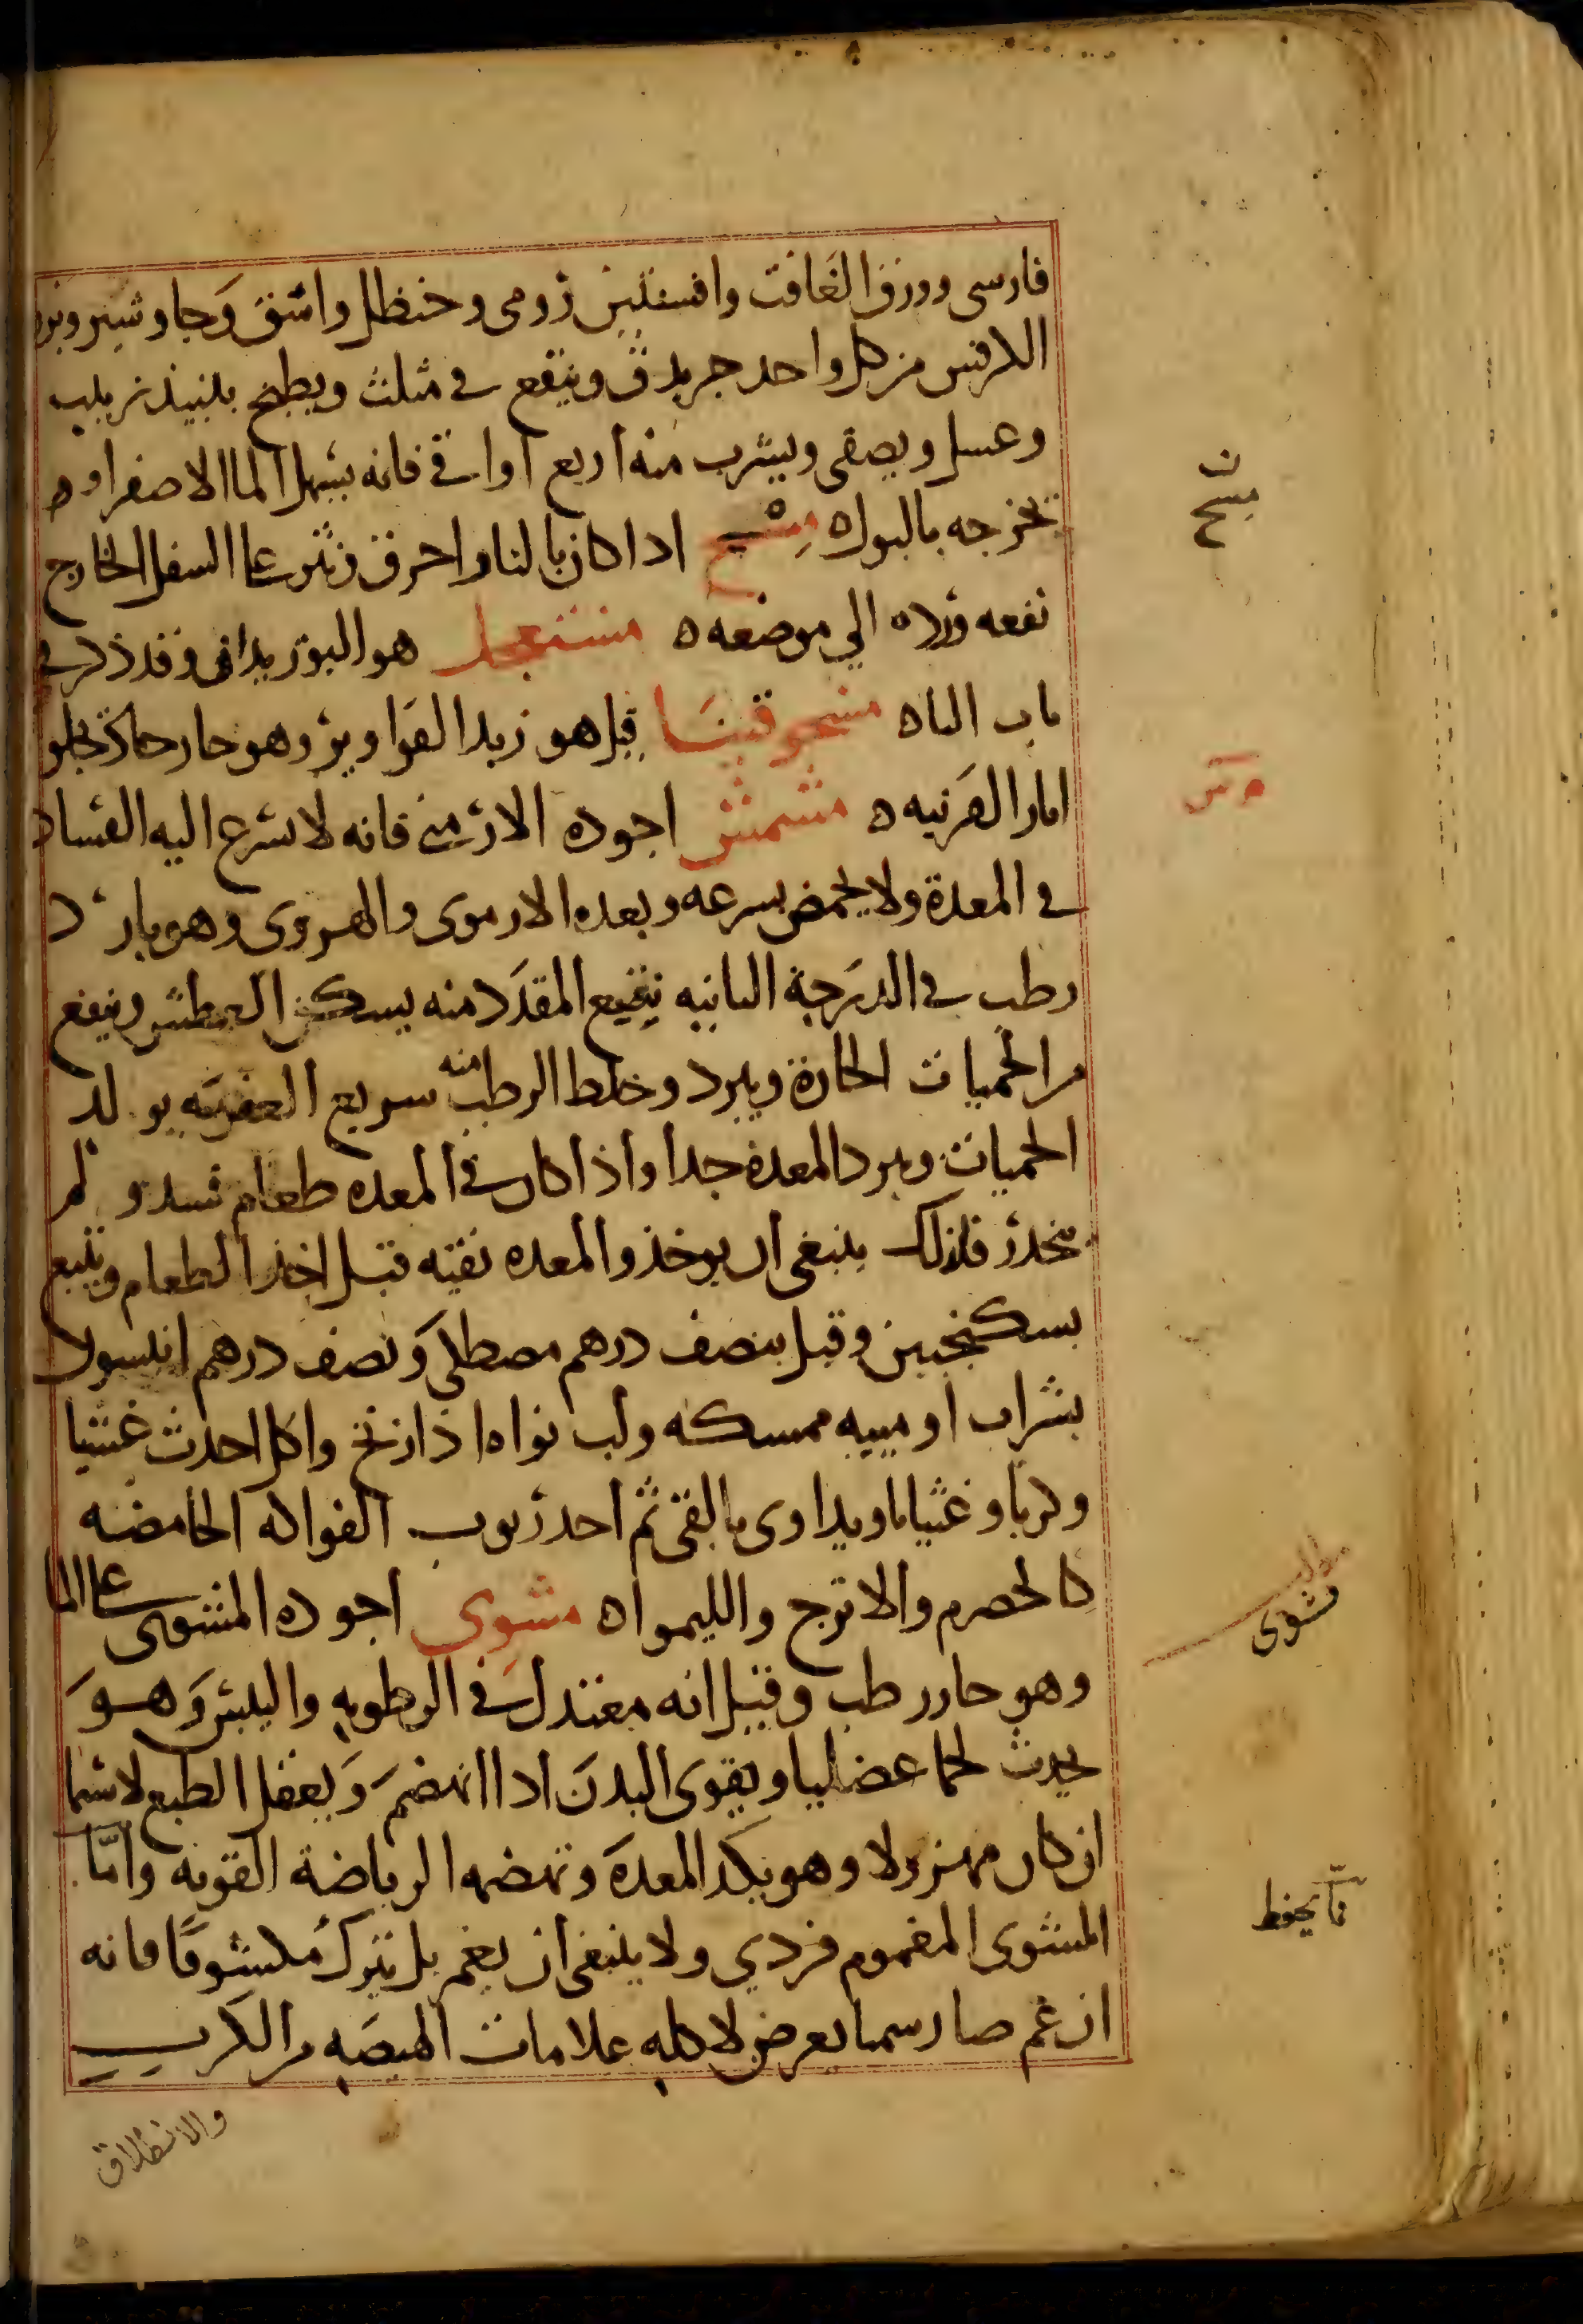 فارسى وورق الغافت وافسنتين رومى وحنظل واشق وجاوشير وبزر
الكرفس من كل واحد جريدق وينقع فى مثلث ويطبخ بنبيذ زبيب
وعسل ويصفى ويشرب منه اربع اواقى فانه يسهل الما الاصفر او ه
يخرجه بالبول ه مسح اذا كان بالنار احرق ونثر على السفل الخارج
نفعه ورده الى موضعه ه مستعجل هو البوزيدان وقد ذكر فى
باب الباه مسحوقنيا قيل هو زبد القوارير وهو حار حاد يجلو
اثار القرنيه ه مشمش اجوده الارمنى فانه لا يسرع اليه الفساد
فى المعدة ولا يحمض بسرعه وبعده الارموى والهروى وهو بارد
رطب فى الدرجة الثانيه نقيع المقدد منه يسكن العطش وينفع
من الحميات الحارة ويبرد وخلط الرطب منه سريع العفونه يولد
الحميات ويبرد المعدة جدا واذا كان فى المعده طعام فسد ولم
ينحدر فلذلك ينبغى ان يوخذ والمعده نقيه قبل اخذ الطعام ويتبع
بسكنجبين وقيل بنصف درهم مصطكى ونصف درهم انيسون
بشراب او ميبه ممسكه ولب نواه اذا زنخ واكل احدث غشيا
وكربا وغثيانا ويداوى بالقى ثم احد ربوب الفواكه الحامضه
كالحصرم والاترج والليموا ه مشوى اجوده المشوى على الما
وهو حار رطب وقيل انه معتدل فى الرطوبه واليبس وهو
يحدث لحما عضليا ويقوى البدن اذا انهضم ويعقل الطبع لاسيما
ان كان مهزولا وهو يكد المعدة وتهضمه الرياضة القويه واما
المشوى المغموم فردي ولا ينبغى ان يغم بل يترك مكشوفا فانه
ان غم صار سما يعرض لاكله علامات الهيضه من الكرب
والانطلاق
ن
مسح
مطلب
مشوى
مما يحفظ